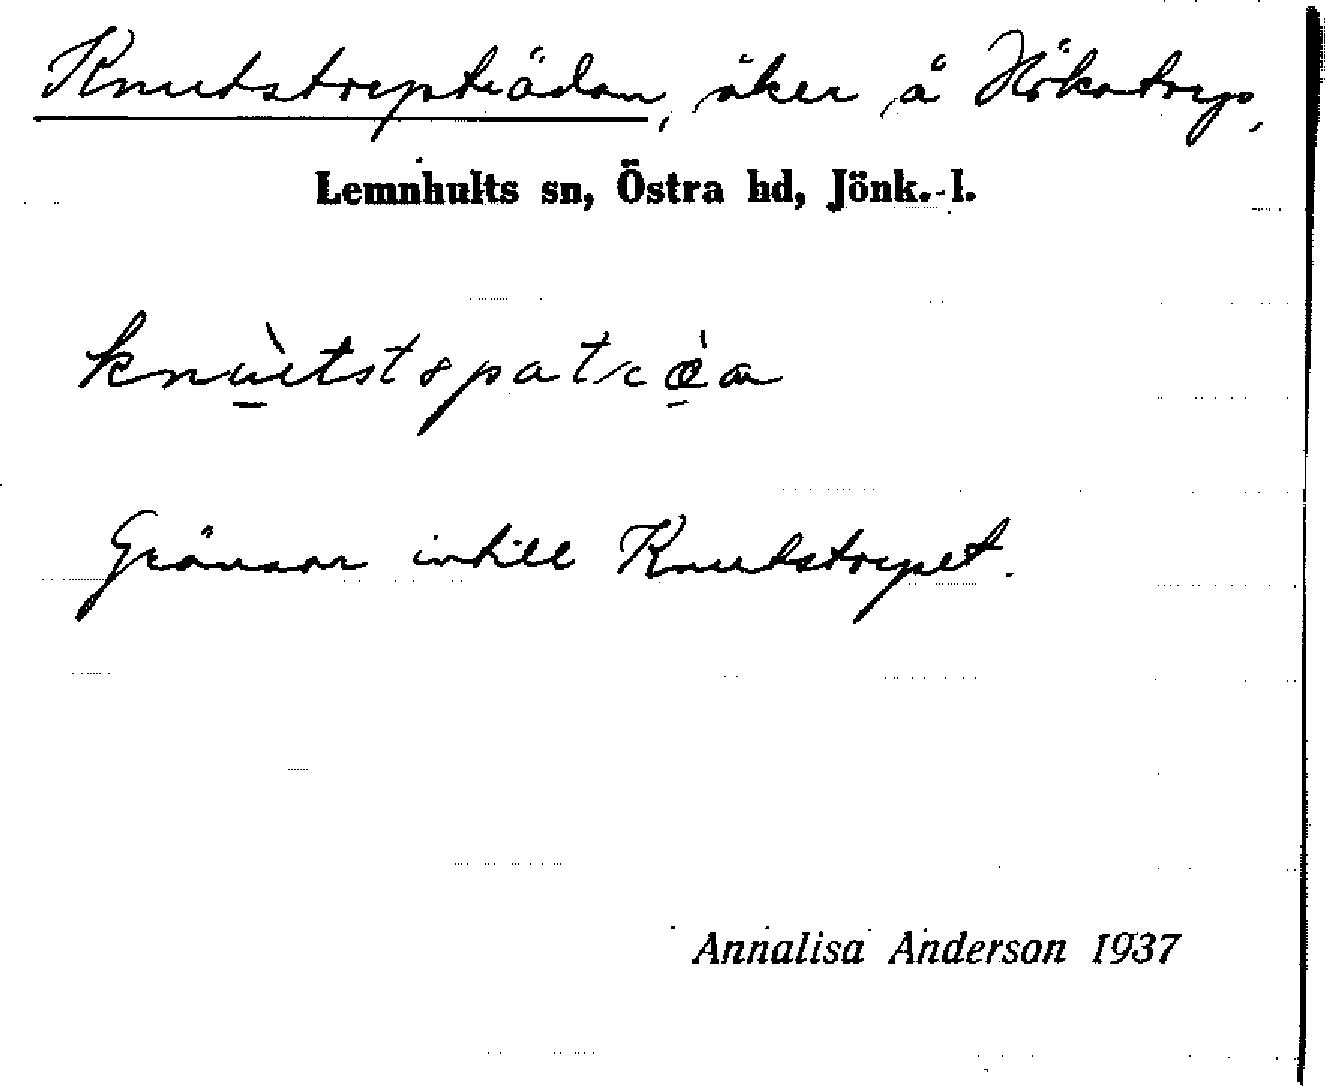 Knutstorpträdan, åker å Hökatorp,
Lemnhults sn, Östra hd, Jönk.-l.
Gränsar intill Knutstorpet.
Annalisa Anderson 1937